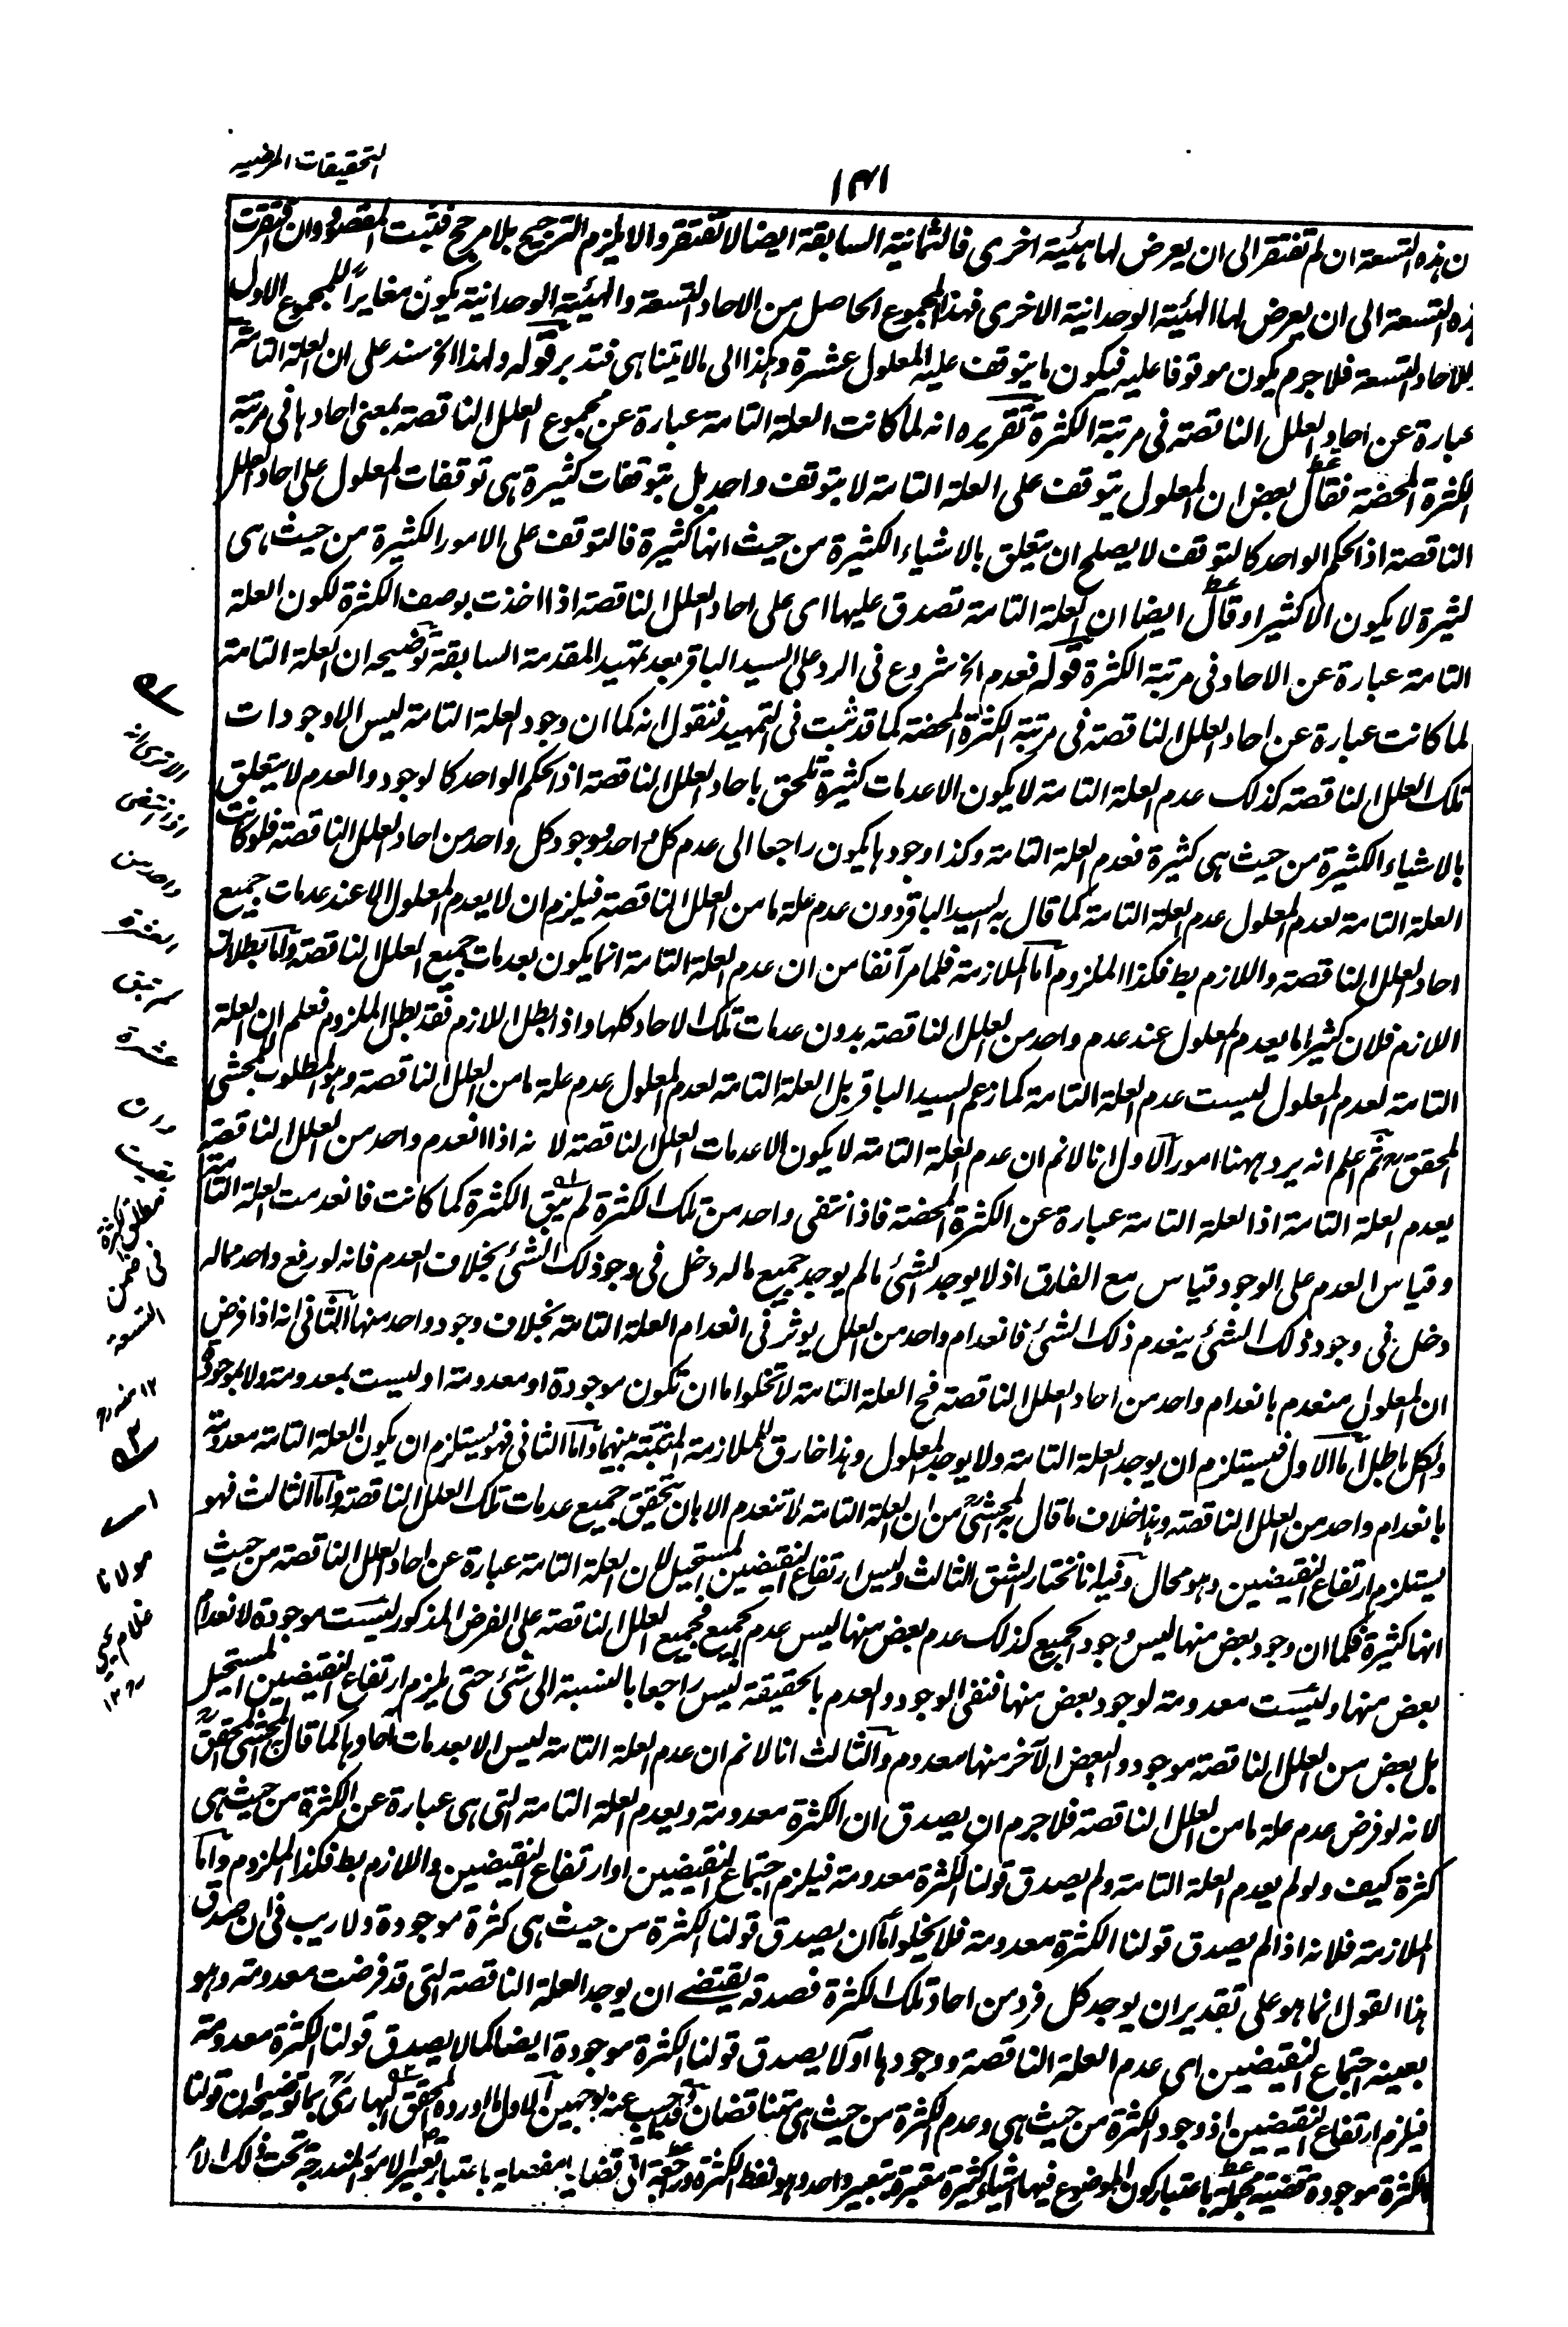 التحقيقات المرضيه
١٣١
ن هذه التسعة ان لم تفتقر الى ان يعرض لها هيئة اخرى فالثمانية السابقة ايضا لا تفتقر والا يلزم الترجيح بلا مرجح فثبت المقصود وان افتقرت
هذه التسعة الى ان يعرض لها الهيئة الوحدانية الاخرى فهذا المجموع الحاصل من الاحاد التسعة والهيئة الوحدانية يكون مغايراً للمجموع الاول
وللاحاد التسعة فلاجرم يكون موقوفا عليه فيكون ما يتوقف عليه المعلول عشرة وهكذا الى مالا يتناهى فتدبر قوله ولهذا الخ سند على ان العلة التامة
عبارة عن احاد العلل الناقصة فى مرتبة الكثرة تقريره انه لما كانت العلة التامة عبارة عن مجموع العلل الناقصة بمعنى احادها فى مرتبة
الكثرة المحضة فقال بعض ان المعلول يتوقف على العلة التامة لا بتوقف واحد بل بتوقفات كثيرة هى توقفات المعلول على احاد العلل
الناقصة اذ الحكم الواحد كالتوقف لا يصلح ان يتعلق بالاشياء الكثيرة من حيث انها كثيرة فالتوقف على الامور الكثيرة من حيث هى
كثيرة لا يكون الا كثيرا وقال ايضا ان العلة التامة تصدق عليها اى على احاد العلل الناقصة اذا اخذت بوصف الكثرة لكون العلة
التامة عبارة عن الاحاد فى مرتبة الكثرة قوله فعدم الخ شروع فى الرد على السيد الباقر بعد تمهيد المقدمة السابقة توضيحه ان العلة التامة
لما كانت عبارة عن احاد العلل الناقصة فى مرتبة الكثرة المحضة كما قد ثبت فى التمهيد فنقول انه كما ان وجود العلة التامة ليس الا وجودات
تلك العلل الناقصة كذلك عدم العلة التامة لا يكون الا عدمات كثيرة تلحق باحاد العلل الناقصة اذ الحكم الواحد كالوجود والعدم لا يتعلق
بالاشياء الكثيرة من حيث هى كثيرة فعدم العلة التامة وكذا وجودها يكون راجعا الى عدم كل واحد ووجود كل واحد من احاد العلل الناقصة فلو كانت
العلة التامة لعدم المعلول عدم العلة التامة كما قال به السيد الباقر دون عدم علة ما من العلل الناقصة فيلزم ان لا يعدم المعلول الا عند عدمات جميع
احاد العلل الناقصة واللازم بط فكذا الملزوم اما الملازمة فلما مر آنفا من ان عدم العلة التامة انما يكون بعدمات جميع العلل الناقصة واما بطلان
اللازم فلان كثيرا ما يعدم المعلول عند عدم واحد من العلل الناقصة بدون عدمات تلك الاحاد كلها واذا بطل اللازم فقد بطل الملزوم فعلم ان العلة
التامة لعدم المعلول ليست عدم العلة التامة كما زعم السيد الباقر بل العلة التامة لعدم المعلول عدم علة ما من العلل الناقصة وهو المطلوب للمحشى
المحقق ثم اعلم انه يرد ههنا امور الاول انا لانم ان عدم العلة التامة لا يكون الا عدمات العلل الناقصة لانه اذا انعدم واحد من العلل الناقصة
يعدم العلة التامة اذ العلة التامة عبارة عن الكثرة المحضة فاذا انتفى واحد من تلك الكثرة لم يبق الكثرة كما كانت فانعدمت العلة التامة
وقياس العدم على الوجود قياس مع الفارق اذ لا يوجد الشئ ما لم يوجد جميع ما له دخل فى وجود ذلك الشئ بخلاف العدم فانه لو رفع واحد مما له
دخل فى وجود ذلك الشئ ينعدم ذلك الشئ فانعدام واحد من العلل يوثر فى انعدام العلة التامة بخلاف وجود واحد منها الثانى انه اذا فرض
ان المعلول منعدم بانعدام واحد من احاد العلل الناقصة فح العلة التامة لا تخلوا ما ان تكون موجودة او معدومة او ليست بمعدومة ولا بموجودة
والكل باطل اما الاول فيستلزم ان يوجد العلة التامة ولا يوجد المعلول وهذا خارق للملازمة المثبتة بينهما واما الثانى فهو يستلزم ان يكون العلة التامة معدومة
بانعدام واحد من العلل الناقصة وهذا خلاف ما قال به المحشى من ان العلة التامة لا تنعدم الا بان تحقق جميع عدمات تلك العلل الناقصة واما الثالث فهو
يستلزم ارتفاع النقيضين وهو محال وفيه انا نختار الشق الثالث وليس ارتفاع النقيضين المستحيل لان العلة التامة عبارة عن احاد العلل الناقصة من حيث
انها كثيرة فكما ان وجود بعض منها ليس وجود الجميع كذلك عدم بعض منها ليس عدم الجميع فجميع العلل الناقصة على الفرض المذكور ليست موجودة لانعدام
بعض منها وليست معدومة لوجود بعض منها فنفى الوجود والعدم بالحقيقة ليس راجعا بالنسبة الى شئ حتى يلزم ارتفاع النقيضين المستحيل
بل بعض من العلل الناقصة موجود والبعض الآخر منها معدوم والثالث انا لانم ان عدم العلة التامة ليس الا بعدمات احادها كما قال المحشى المحقق
لانه لو فرض عدم علة ما من العلل الناقصة فلاجرم ان يصدق ان الكثرة معدومة ويعدم العلة التامة التى هى عبارة عن الكثرة من حيث هى
كثرة كيف ولو لم يعدم العلة التامة ولم يصدق قولنا الكثرة معدومة فيلزم اجتماع النقيضين او ارتفاع النقيضين واللازم بط فكذا الملزوم واما
الملازمة فلانه اذا لم يصدق قولنا الكثرة معدومة فلا يخلوا اما ان يصدق قولنا الكثرة من حيث هى كثرة موجودة ولا ريب فى ان صدق
هذا القول انما هو على تقدير ان يوجد كل فرد من احاد تلك الكثرة فصدقه يقتضے ان يوجد العلة الناقصة التى قد فرضت معدومة وهو
بعينه اجتماع النقيضين اى عدم العلة الناقصة ووجودها او لا يصدق قولنا الكثرة موجودة ايضا كما لا يصدق قولنا الكثرة معدومة
فيلزم ارتفاع النقيضين اذ وجود الكثرة من حيث هى وعدم الكثرة من حيث هى متناقضان وقد اجيب عنه بوجهين الاول ما اورده المحقق البهارى بما توضيحه ان قولنا
الكثرة موجودة قضية مجملة باعتبار كون الموضوع فيها اشياء كثيرة معتبرة بتعبير واحد وهو لفظ الكثرة وراجعة الى قضايا مفصلة باعتبار تعبير الامور المندرجة تحت ذلك الا
الا ترى انه
اذا انتفى
واحد من
العشرة
لم تبق
عشرة
وان
بقيت
مطلق الكثرة
فى ضمن
التسعة
١٢ منه
اے
مولانا
غلام يحيى
١٢